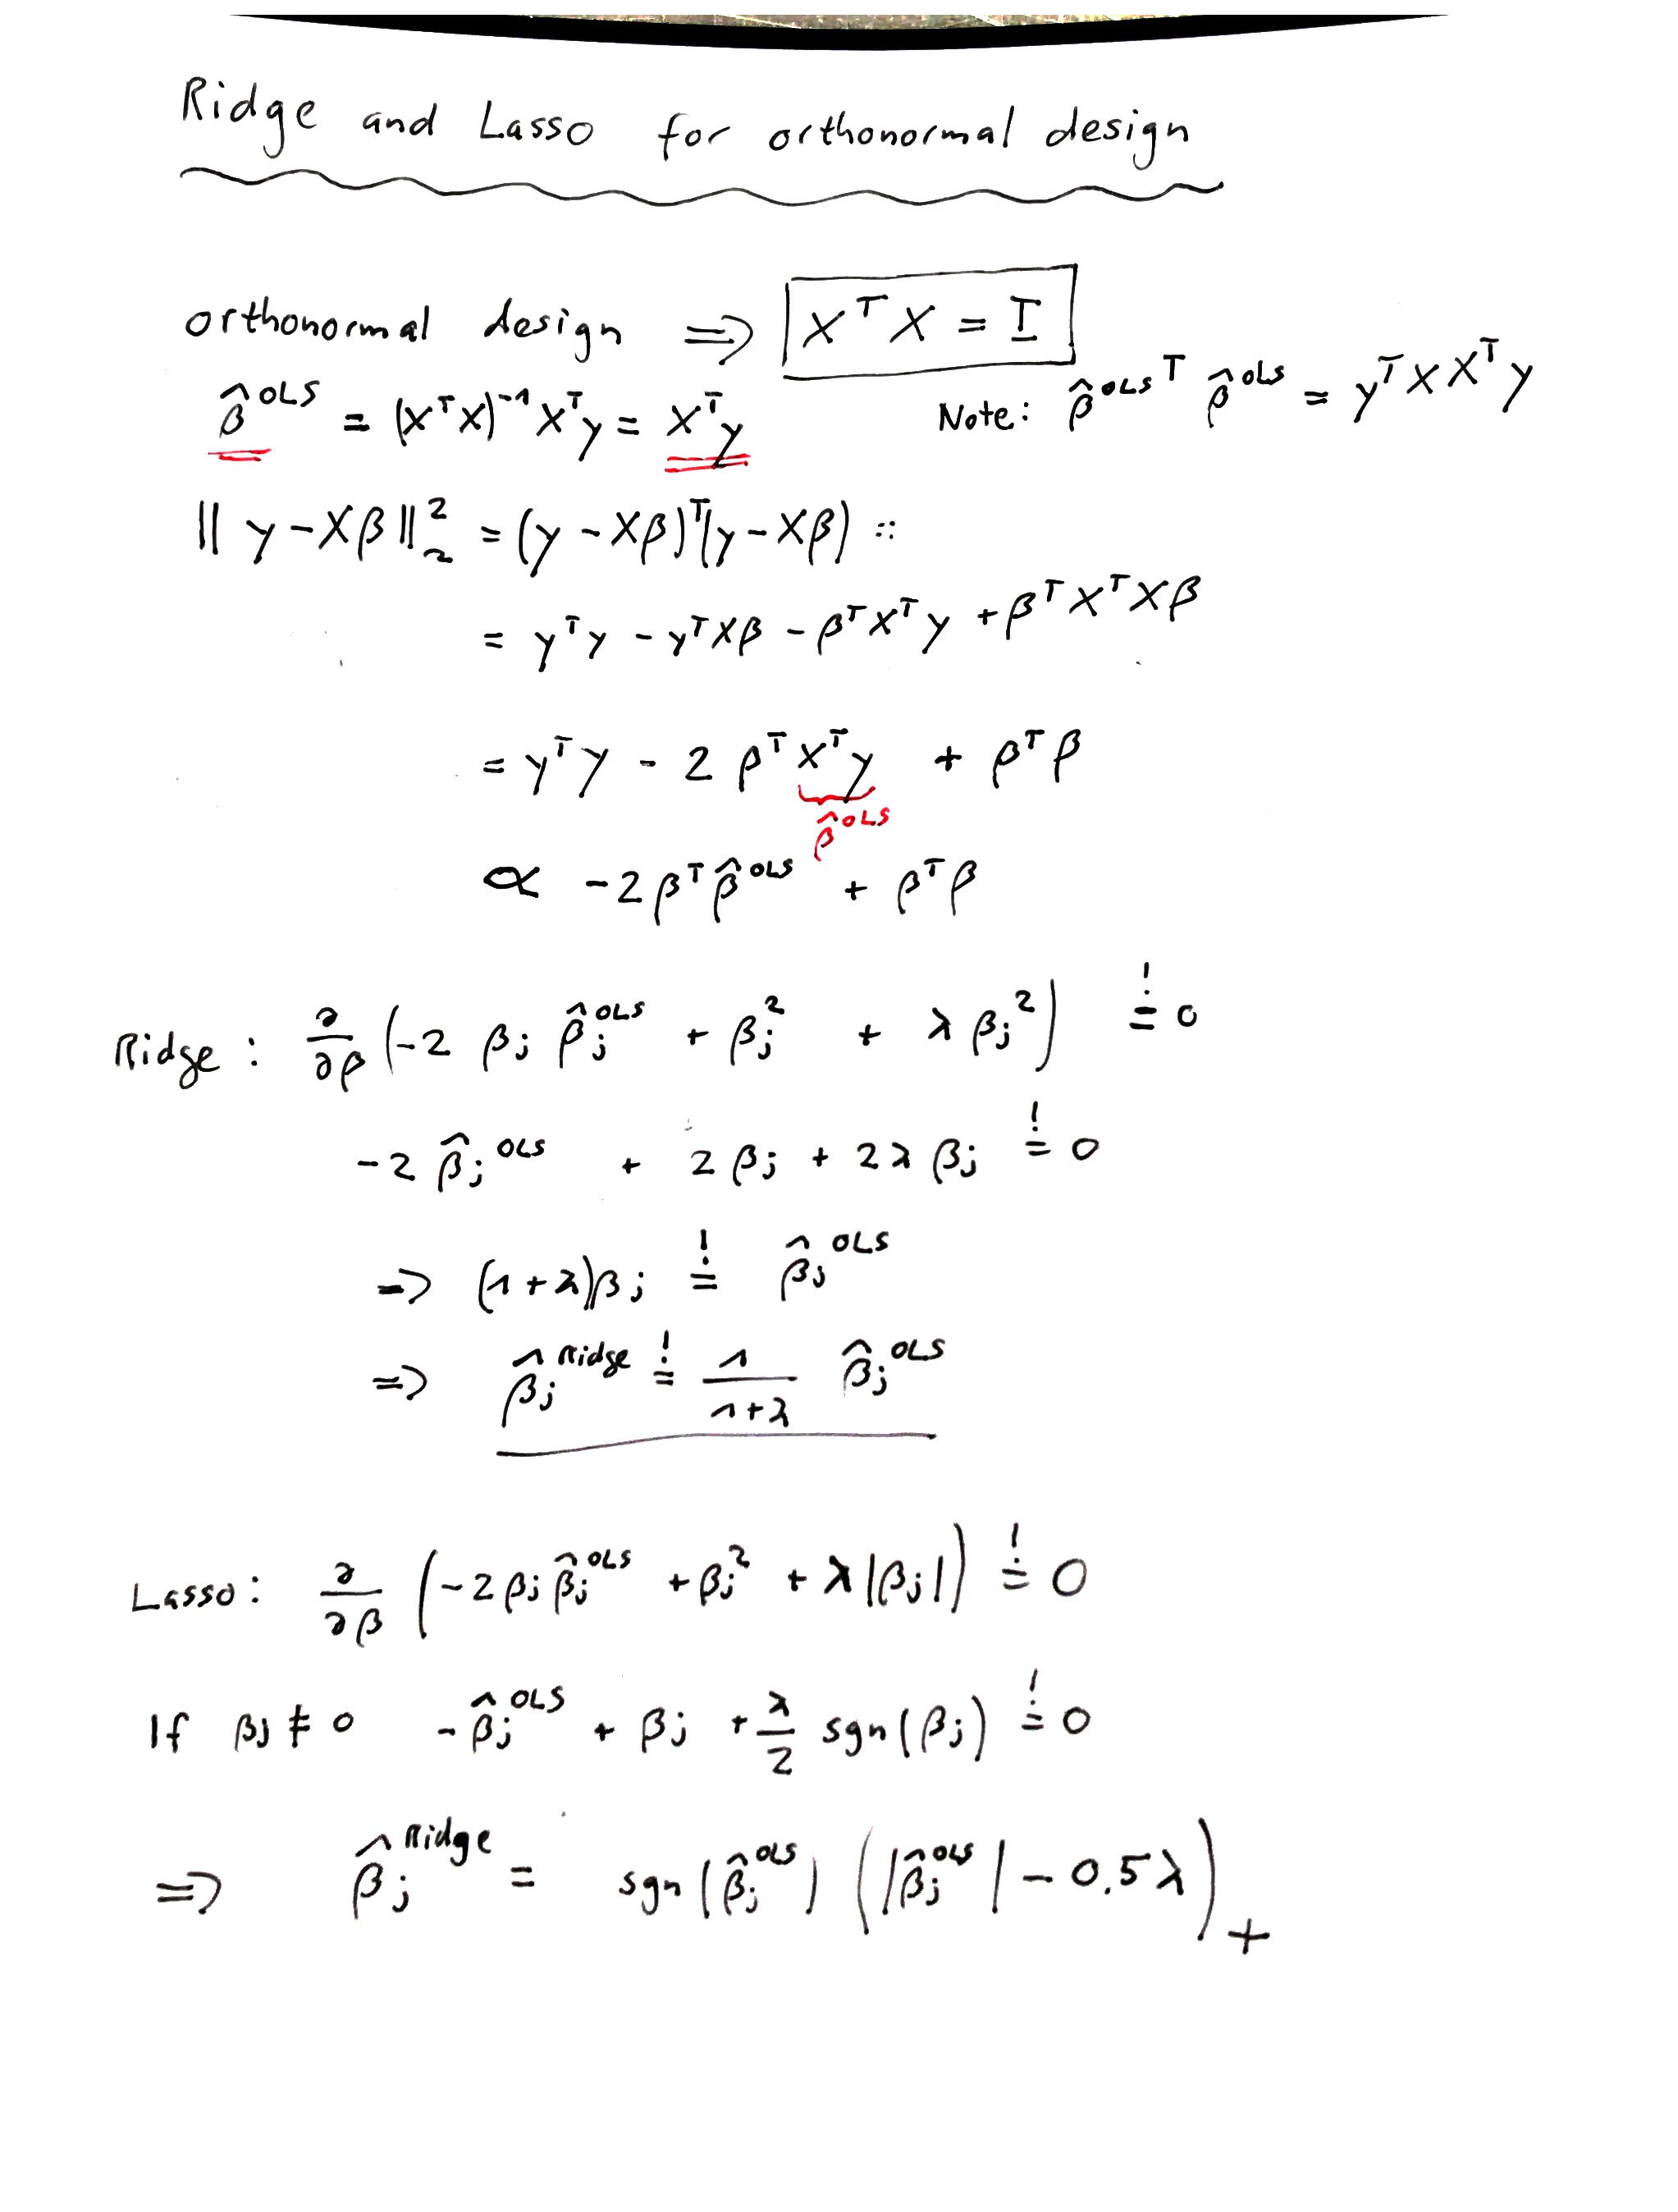 Ridge and Lasso for orthonormal design
orthonormal design ⇒ XᵀX = I
β̂^OLS = (XᵀX)⁻¹Xᵀy = Xᵀy
Note: β̂^OLS ᵀ β̂^OLS = yᵀXXᵀy
‖y-Xβ‖₂² = (y-Xβ)ᵀ(y-Xβ) =
= yᵀy - yᵀXβ - βᵀXᵀy + βᵀXᵀXβ
= yᵀy - 2 βᵀXᵀy + βᵀβ
β̂^OLS
∝ -2βᵀβ̂^OLS + βᵀβ
Ridge: ∂/∂β (-2 βj β̂j^OLS + βj² + λβj²) =! 0
-2 β̂j^OLS + 2βj + 2λβj =! 0
⇒ (1+λ)βj =! β̂j^OLS
⇒ β̂j^Ridge =! 1/(1+λ) β̂j^OLS
Lasso: ∂/∂β (-2βjβ̂j^OLS + βj² + λ|βj|) =! 0
If βj ≠ 0 -β̂j^OLS + βj + λ/2 sgn(βj) =! 0
⇒ β̂j^Ridge = sgn(β̂j^OLS) (|β̂j^OLS| - 0.5λ)₊